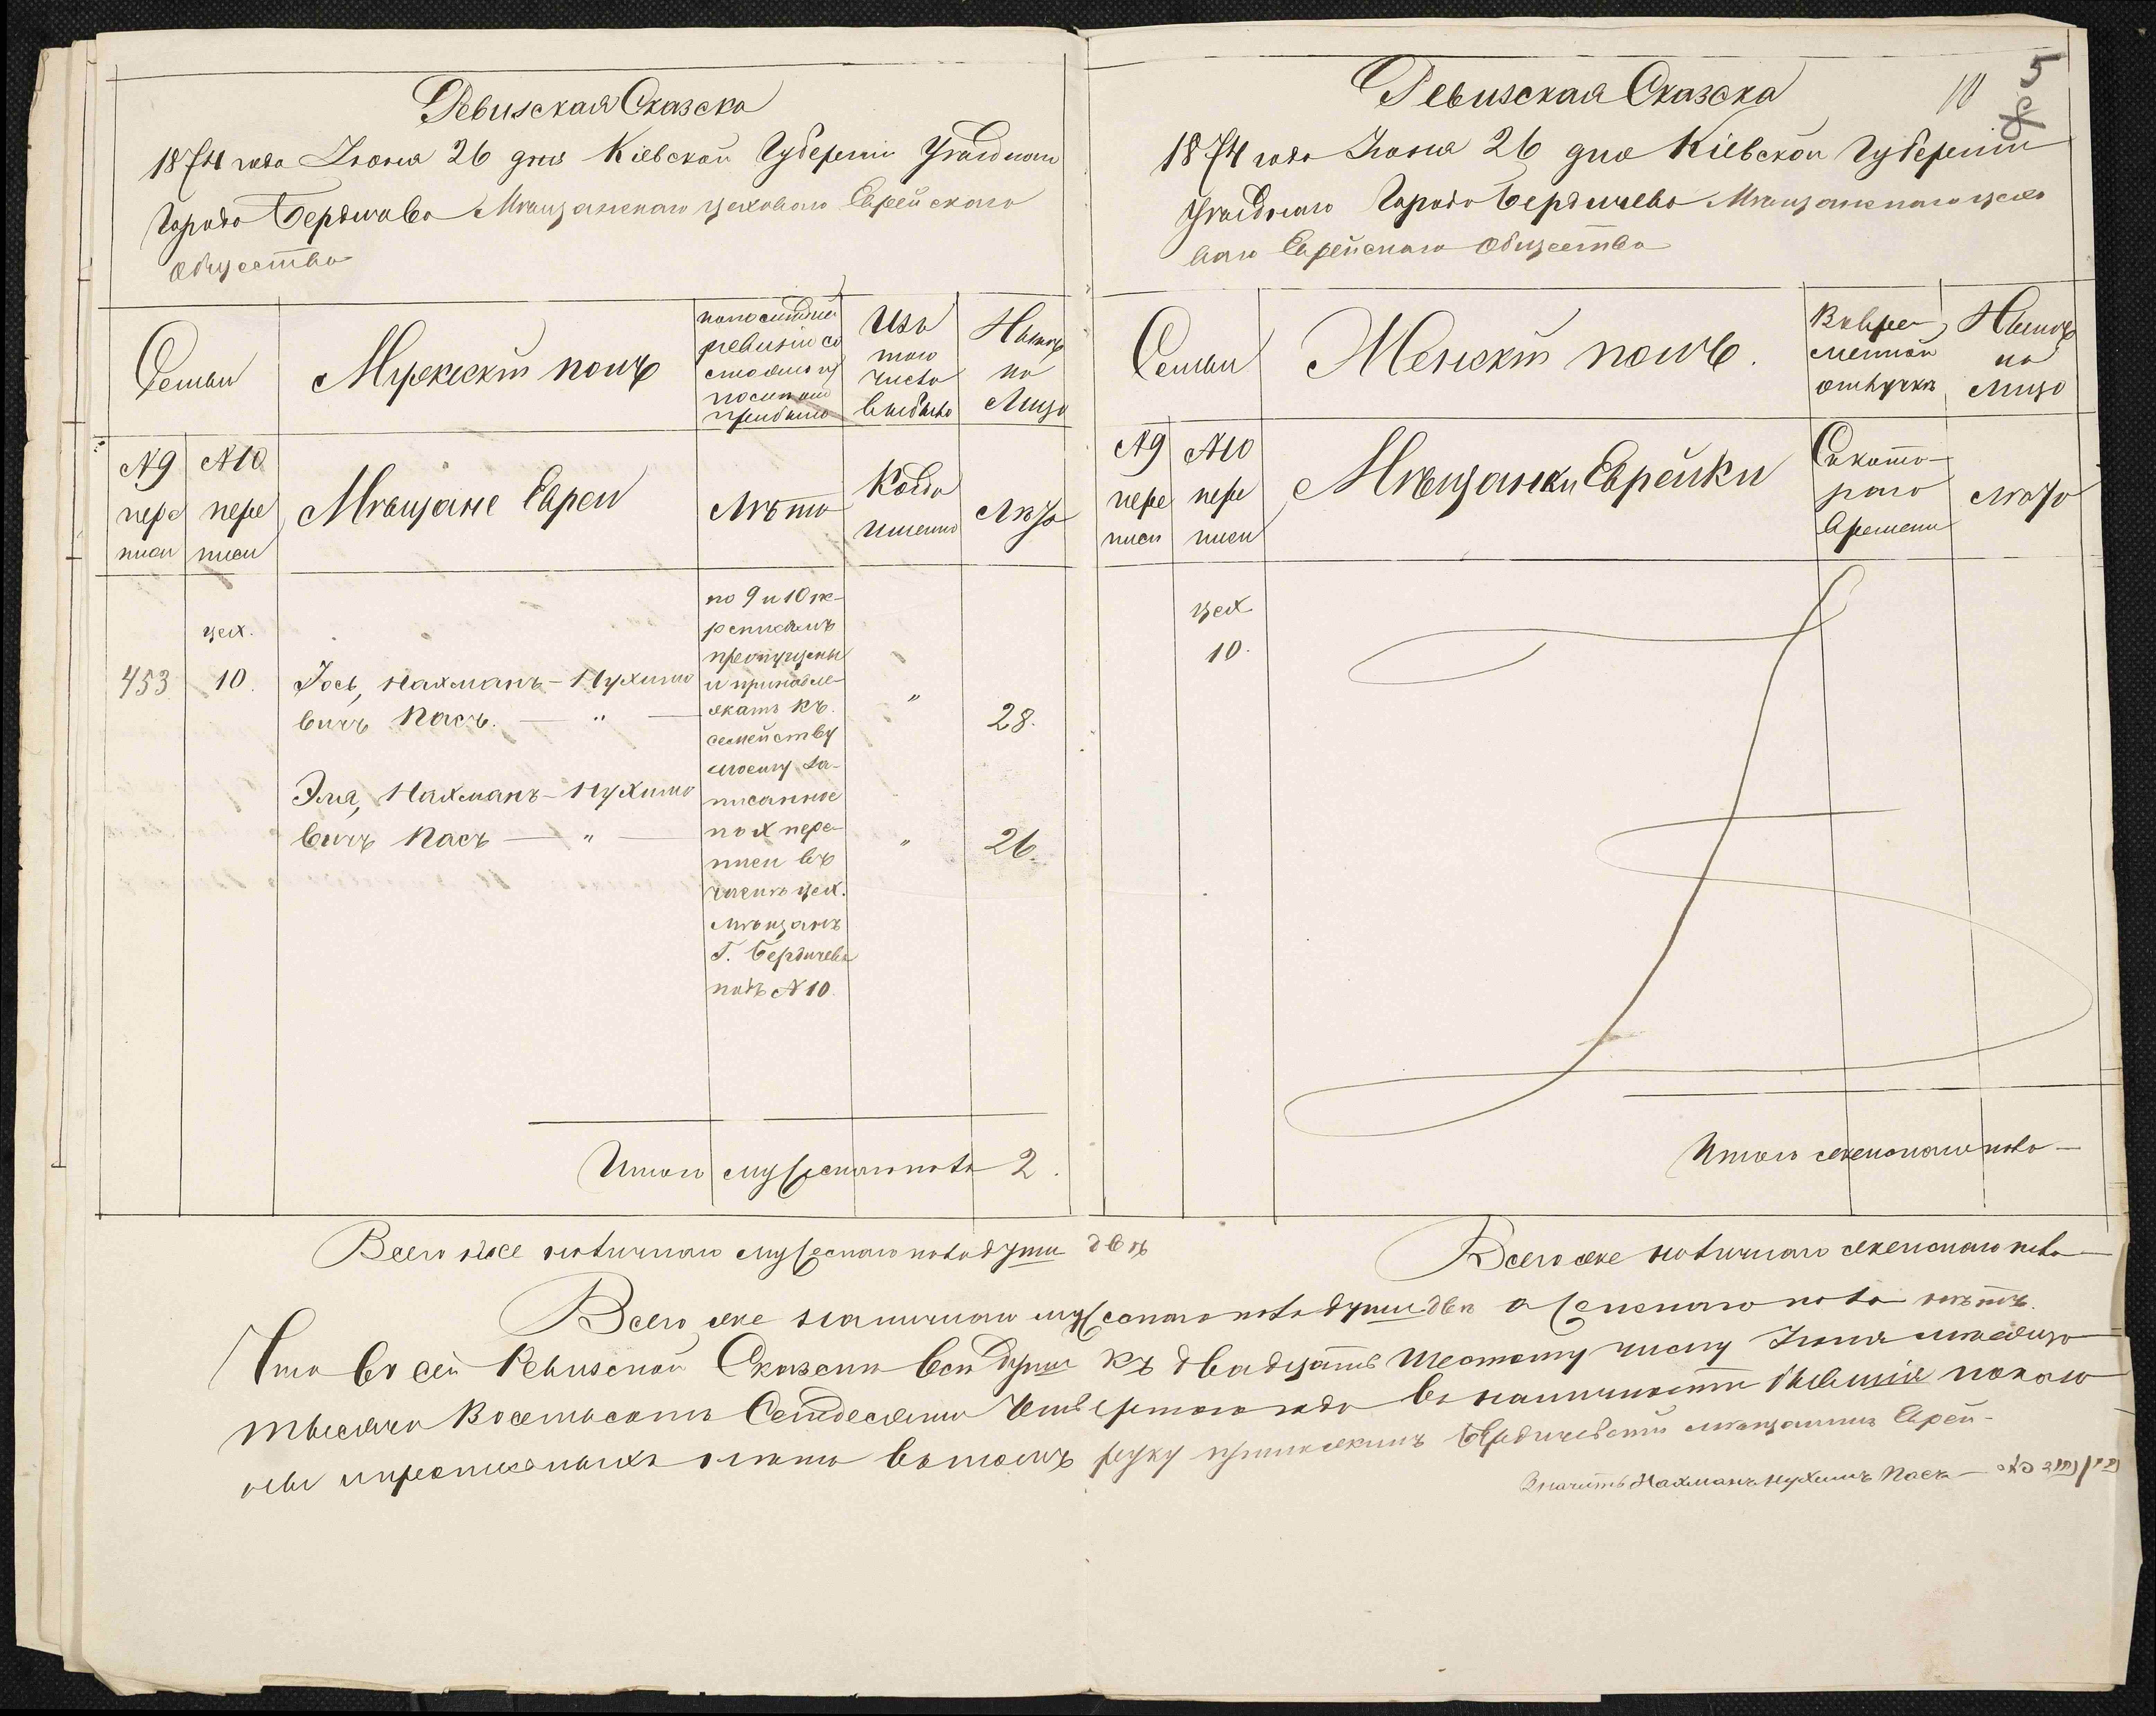 Ревизская Сказска
1874 года Іюня 26 дня Кіевской Губерніи Уезднаго
Города Бердичева Мещанскаго цеховаго Еврейскаго
общества
Семьи
Мужескій полъ
по последней
ревизіи со
стояло и
после
прибыло
Изъ
того
числа
выбыло
Ныне
на
лицо
N9
пере
писи
N10
пере
писи
Мѣщане Евреи
Лѣта
Когда
именно
Лѣта
по 9 и 10 пе-
реписямъ
пропущены
и принадле-
жатъ къ
семейству
моему за-
писанное
по X пере-
писи въ
числѣ цех.
мѣщанъ
Г. Бердичева
подъ N10.
цех.
453 10. Іось, Нахманъ-Нухимо
вичъ Пасъ. — " — " 28.
Эля, Нахманъ-Нухимо
вичъ Пасъ — " — " 26.
Итого мужескаго пола 2.
Всего же наличнаго мужескаго пола души двѣ
5
10
Ревизская Сказска
1874 года Іюня 26 дня Кіевской Губерніи
Уезднаго Города Бердичева Мещанскаго цехо
ваго Еврейскаго общества
Семьи
Женскій полъ.
Въ вре-
менной
отлучкѣ
Ныне
на
лицо
N9
пере
писи
N10
пере
писи
Мѣщанки Еврейки
Съ кото-
раго
времени
лѣта
цех
10.
Итого женскаго пола —
Всего же наличнаго женскаго пола —
Всего же наличнаго мужескаго пола души двѣ а женскаго пола нѣтъ.
Что въ сей Ревизской Сказски все души къ двадцать шестому числу Іюня месяца
тысяча восемьсотъ семдесятъ четвертаго года въ наличности бывшіе показа
ны и прописныхъ нѣтъ въ томъ руку приложилъ Бердичевскій мѣщанинъ Еврей-
Значитъ Нахманъ Нухимъ Пасъ —